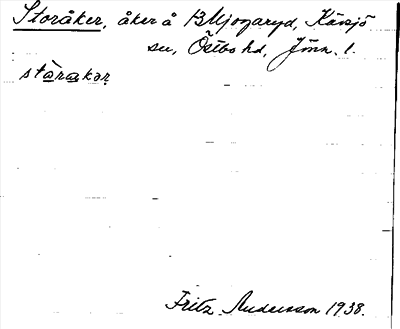 Storåker, åker å Bljogaryd, Kävsjö
sn, Östbo hd, Jönn. l.
stàrakər
Fritz Andersson 1938.